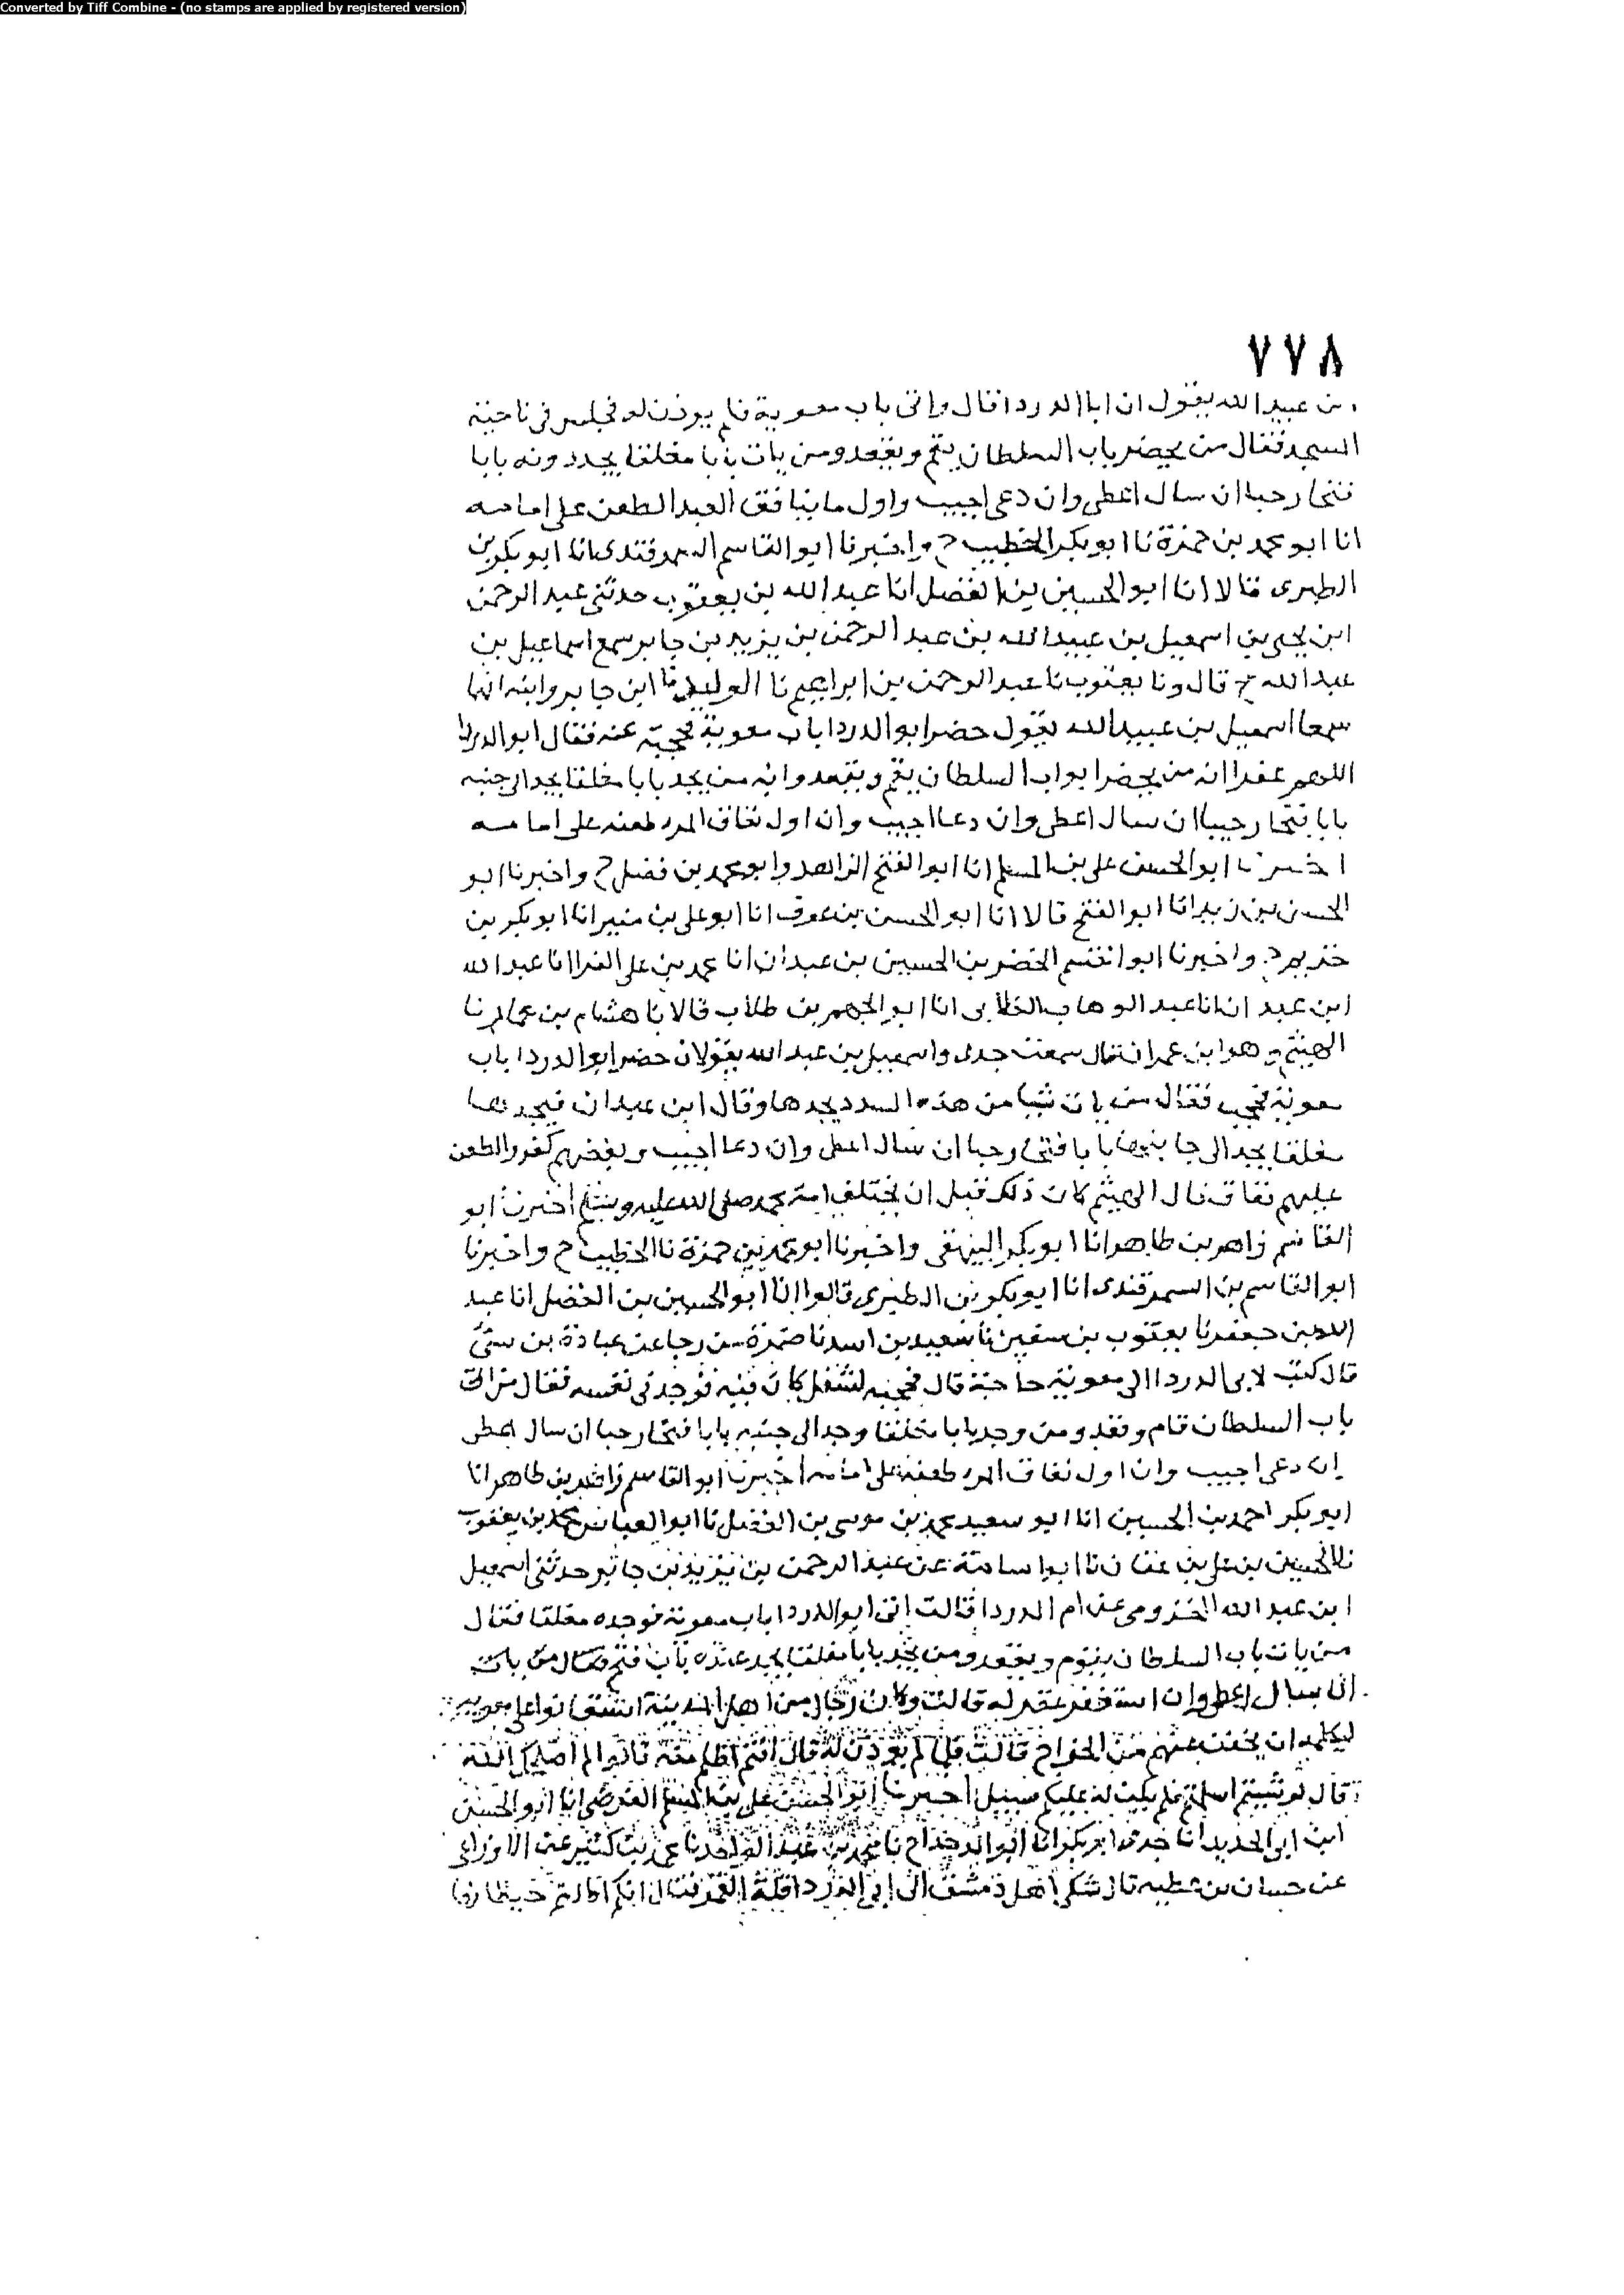 Converted by Tiff Combine - (no stamps are applied by registered version)
٧٧٨
بن عبيد الله يقول ان ابا الدردا قال واتى باب معوية فلم يوذن له فجلس فى ناحية
المسجد فقال من يحضر باب السلطان يقم ويقعد ومن يات بابا مغلقا يجد دونه بابا
فتحا رحبا ان سال اعطى وان دعى اجيب واول ما ينافق العبد الطعن على امامه
انا ابو محمد بن حمزة نا ابو بكر الخطيب ح واخبرنا ابو القاسم السمرقندى انا ابو بكر بن
الطبرى قالا انا ابو الحسين بن الفضل انا عبد الله بن يعقوب حدثنى عبد الرحمن
ابن يحيى بن اسمعيل بن عبيد الله بن عبد الرحمن بن يزيد بن جابر سمع اسماعيل بن
عبد الله ح قال ونا يعقوب نا عبد الرحمن بن ابراهيم نا الوليد نا ابن جابر وابنه انهما
سمعا اسمعيل بن عبيد الله يقول حضر ابو الدردا باب معوية فحجبه عنه فقال ابو الدردا
اللهم غفرا انه من يحضر ابواب السلطان يقم ويقعد وانه من يجد بابا مغلقا يجد الى جنبه
بابا فتحا رحبا ان سال اعطى وان دعا اجيب وان اول نفاق المر طعنه على امامه
اخبرنا ابو الحسن على بن المسلم انا ابو الفتح الزاهد وابو محمد بن فضل ح واخبرنا ابو
الحسن بن زيد انا ابو الفتح قالا انا ابو الحسن بن عوف انا ابو على بن منير انا ابو بكر بن
خريم ح واخبرنا ابو القسم الخضر بن الحسين بن عبدان انا محمد بن على الفرا انا عبد الله
ابن عبدان انا عبد الوهاب الكلابى انا ابو الجهم بن طلاب قالا نا هشام بن عمار نا
الهيثم وهو ابن عمران قال سمعت جدى واسمعيل بن عبد الله يقولان حضر ابو الدردا باب
معوية فحجب فقال من يات شيا من هذه السدد يجدها وقال ابن عبدان فيجدها
مغلقا يجد الى جانبها بابا فتحا رحبا ان سال اعطى وان دعا اجيب وبغضهم كفر والطعن
عليهم نفاق قال الهيثم كان ذلك قبل ان يختلف امة محمد صلى الله عليه وسلم اخبرنا ابو
القاسم زاهر بن طاهر انا ابو بكر البيهقى واخبرنا ابو محمد بن حمزة نا الخطيب ح واخبرنا
ابو القاسم بن السمرقندى انا ابو بكر بن الطبرى قالوا انا ابو الحسين بن الفضل انا عبد
الله بن جعفر نا يعقوب بن سفين نا سعيد بن اسد نا ضمرة عن رجا عن عبادة بن نسى
قال كتب لابى الدردا الى معوية حاجة قال فحجبه لشغل كان فيه فوجد فى نفسه فقال من اتى
باب السلطان قام وقعد ومن وجد بابا مغلقا وجد الى جنبه بابا فتحا رحبا ان سال اعطى
ان دعى اجيب وان اول نفاق المر طعنه على امامه اخبرنا ابو القاسم زاهر بن طاهر انا
ابو بكر احمد بن الحسين انا ابو سعيد محمد بن موسى بن الفضل نا ابو العباس محمد بن يعقوب
نا الحسين بن على بن عفان نا ابو اسامة عن عبد الرحمن بن يزيد بن جابر حدثنى اسمعيل
ابن عبد الله المخزومى عن ام الدردا قالت اتى ابو الدردا باب معوية فوجده مغلقا فقال
من يات باب السلطان يقوم ويقعد ومن يجد بابا مغلقا يجد عنده باب فتح
ان يسال اعطى وان استغفر غفر له قالت وكان رجال من اهل المدينة
ليكلمه ان يخفف عنهم من الخراج قالت فلما لم يوذن له قال انتم اظلم منه قالوا لم اصلحك الله
قال لو شيتم اسلمتم فلم يكن له عليكم سبيل اخبرنا ابو الحسن على بن المسلم الفرضى انا ابو الحسن
ابن ابى الحديد انا جدى ابو بكر انا ابو الدحداح نا محمد بن كثير عن الاوزاعى
عن حسان بن عطيه قال شكى اهل دمشق الى ابى الدردا قلة الثمر فقال انكم اطلتم حيطانها